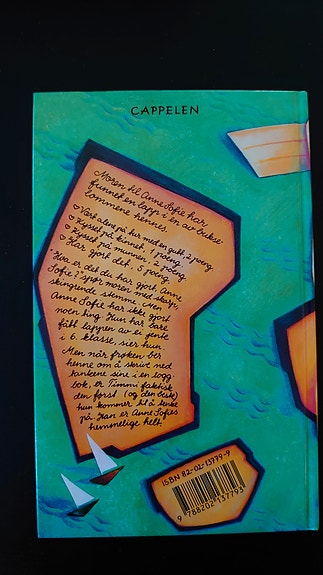 CAPPELEN
Moren til Anne Sofie har
funnet en lapp i en av bukse-
lommene hennes.
♡ Vært alene på hus med en gutt, 2 poeng.
♡ Kysset på kinnet, 1 poeng.
♡ Kysset på munnen, 2 poeng.
♡ Har gjort det, 5 poeng.
"Hva er det du har gjort, Anne
Sofie?" spør moren med skarp,
skingrende stemme. Men
Anne Sofie har ikke gjort
noen ting. Hun har bare
fått lappen av ei jente
i 6. klasse, sier hun.
Men når frøken ber
henne om å skrive ned
tankene sine i en logg-
bok, er Timmi faktisk
den først (og den beste)
hun kommer til å tenke
på. Han er Anne Sofies
hemmelige helt.
ISBN 82-02-13779-9
9 788202 137793